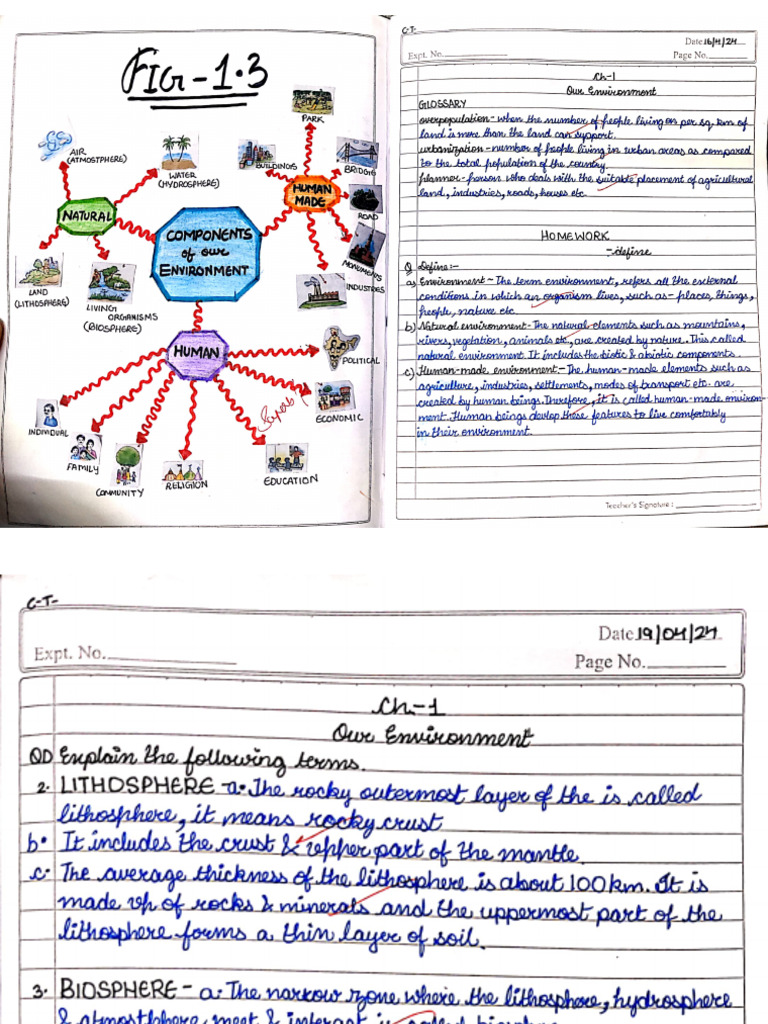 FIG-1.3
PARK
AIR
(ATMOSTPHERE)
WATER
(HYDROSPHERE)
BUILDINGS
BRIDGIS
NATURAL
HUMAN
MADE
ROAD
COMPONENTS
of our
ENVIRONMENT
MONUMENTS
INDUSTRIES
LAND
(LITHOSPHERE)
LIVING
ORGANISMS
(BIOSPHERE)
HUMAN
POLITICAL
ECONOMIC
INDIVIDUAL
FAMILY
COMMUNITY
RELIGION
EDUCATION
C-T-
Date 16/4/24
Expt. No.
Page No.
Ch-1
Our Environment
GLOSSARY
overpopulation- when the number of people living on per sq. km of
land is more than the land can support.
urbanization- number of people living in urban areas as compared
to the total population of the country.
planner- person who deals with the suitable placement of agricultural
land, industries, roads, houses etc
HOMEWORK
-define
Q Define:-
a) Environment- The term environment, refers all the external
conditions in which an organism lives, such as- places, things,
people, nature etc
b) Natural environment- The natural elements such as mountains,
rivers, vegetation, animals etc., are created by nature. This called
natural environment. It includes the biotic & abiotic components.
c) Human-made environment- The human-made elements such as
agriculture, industries, settlements, modes of transport etc. are
created by human beings. Therefore, it is called human-made environ-
ment. Human beings develop these features to live comfortably
in their environment.
Teacher's Signature :
C-T-
Date 19/04/24
Expt. No.
Page No.
Ch-1
Our Environment
QD Explain the following terms.
2. LITHOSPHERE - a. The rocky outermost layer of the is called
lithosphere, it means rocky crust
b. It includes the crust & upper part of the mantle.
c. The average thickness of the lithosphere is about 100 km. It is
made up of rocks & minerals and the uppermost part of the
lithosphere forms a thin layer of soil.
3. BIOSPHERE - a. The narrow zone where the lithosphere, hydrosphere
& atmostphere meet & interact is called biosphere